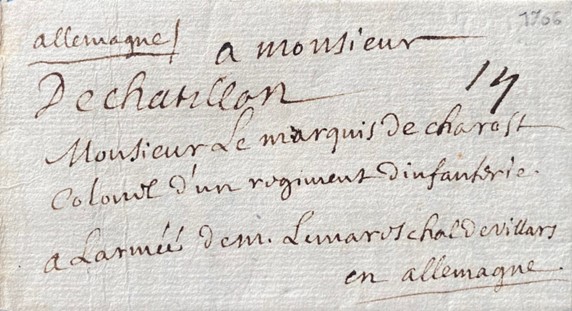 1706
allemagne
a monsieur
De chatillon
14
Monsieur Le marquis de charost
Colonel d'un regiment dinfanterie.
a Larmée de m. Lemareschal de villars
en allemagne